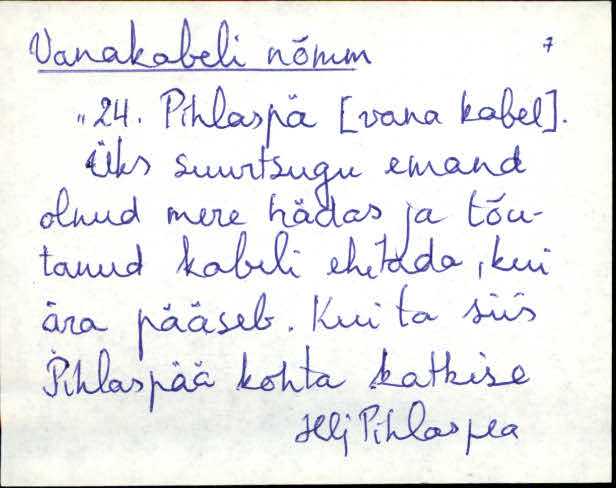 Vanakabeli nõmm 7
„24. Pihlaspä [vana kabel].
Üks suurtsugu emand
olnud mere hädas ja tõu-
tanud kabeli ehitada, kui
ära pääseb. Kui ta siis
Pihlaspää kohta katkise
Hlj Pihlaspea